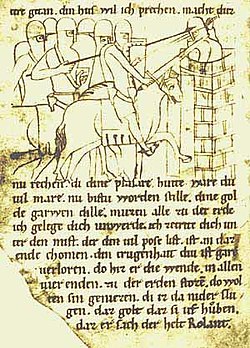 tre getan. din hus wil ich prechen. machtu daz
nu rechen. di dine hute ware du
uil mare. nu bistu worden stille. dine gol
de garwen chille. muzen alle zu der erde
ich gelege dich unwerde. ich zerere dich un
ter den mist. der den uil post list. ist in daz
ende chomen. den trugenhait diu ist gare
uerloren. do hiz er die wende. in allen
uier enden. zu der erden storen. do wol
ten sin genieren. di er da nider slu
gen. daz gold daz si uf huben.
daz er sach der helt Rolant.